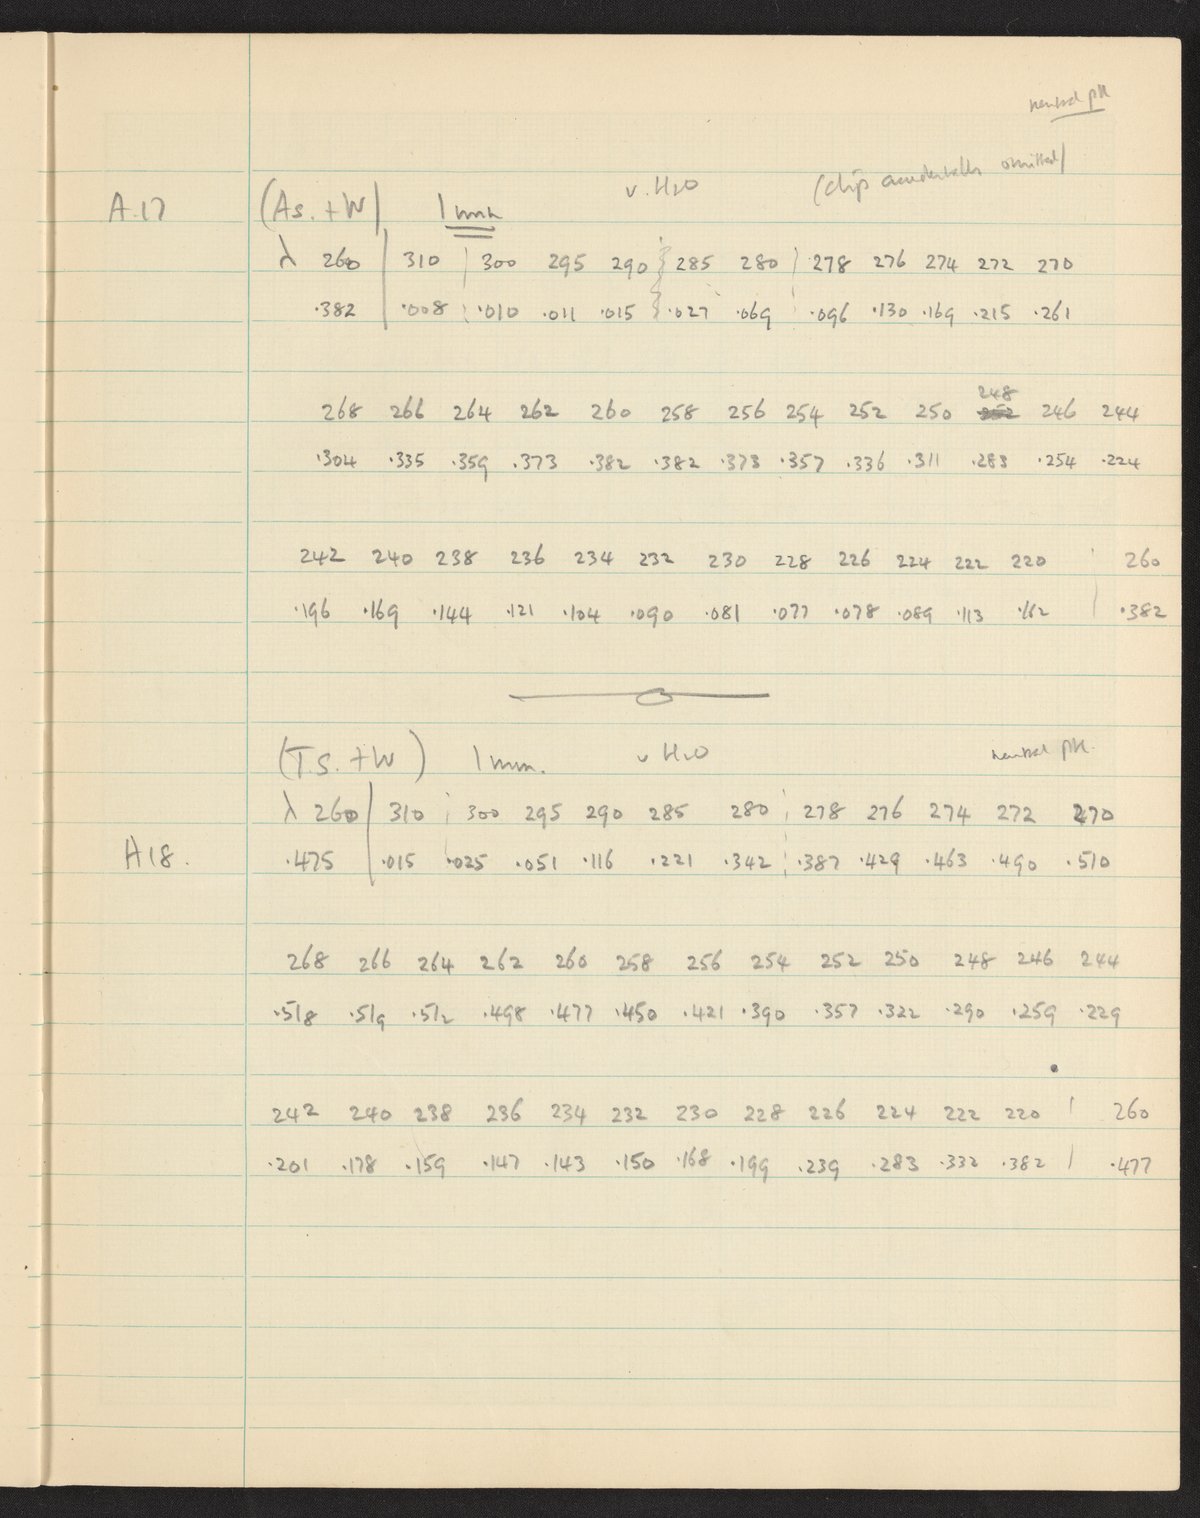 neutral pH
A.17 (As. + W) 1 mm v. H2O (chip accidentally omitted)
λ 260 310 300 295 290 285 280 278 276 274 272 270
.382 .008 .010 .011 .015 .027 .069 .096 .130 .169 .215 .261
248
268 266 264 262 260 258 256 254 252 250 252 246 244
.304 .335 .359 .373 .382 .382 .373 .357 .336 .311 .283 .254 .224
242 240 238 236 234 232 230 228 226 224 222 220 260
.196 .169 .144 .121 .104 .090 .081 .077 .078 .089 .113 .162 .382
(T.S. + W) 1 mm. v H2O neutral pH.
λ 260 310 300 295 290 285 280 278 276 274 272 270
A18. .475 .015 .025 .051 .116 .221 .342 .387 .429 .463 .490 .510
268 266 264 262 260 258 256 254 252 250 248 246 244
.518 .519 .512 .498 .477 .450 .421 .390 .357 .322 .290 .259 .229
242 240 238 236 234 232 230 228 226 224 222 220 260
.201 .178 .159 .147 .143 .150 .168 .199 .239 .283 .332 .382 .477